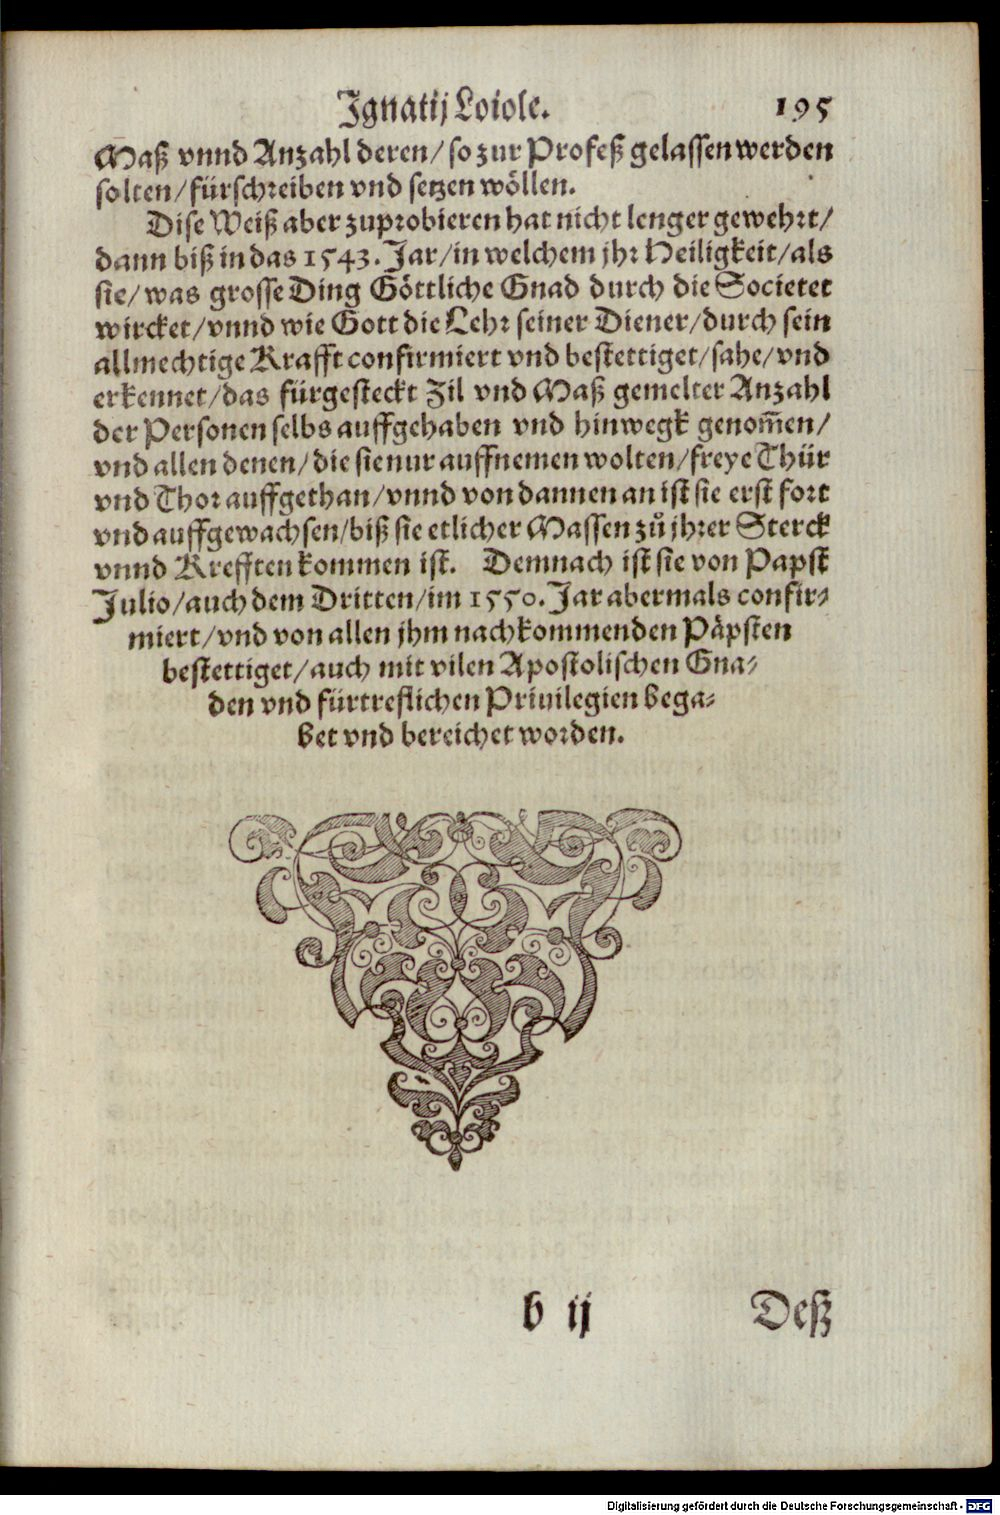 Ignatij Loiole. 195
Maß vnnd Anzahl deren/ so zur Profeß gelassen werden
solten/ fürschreiben vnd setzen wöllen.
Dise Weiß aber zuprobieren hat nicht lenger gewehrt/
dann biß in das 1543. Jar/ in welchem jhr Heiligkeit/ als
sie/ was grosse Ding Göttliche Gnad durch die Societet
wircket/ vnnd wie Gott die Lehr seiner Diener/ durch sein
allmechtige Krafft confirmiert vnd bestettiget/ sahe/ vnd
erkennet/ das fürgesteckt Zil vnd Maß gemelter Anzahl
der Personen selbs auffgehaben vnd hinwegk genom̃en/
vnd allen denen/ die sie nur auffnemen wolten/ freye Thür
vnd Thor auffgethan/ vnnd von dannen an ist sie erst fort
vnd auffgewachsen/ biß sie etlicher Massen zů jhrer Sterck
vnnd Krefften kommen ist. Demnach ist sie von Papst
Julio/ auch dem Dritten/ im 1550. Jar abermals confir⸗
miert/ vnd von allen jhm nachkommenden Päpsten
bestettiget/ auch mit vilen Apostolischen Gna⸗
den vnd fürtreflichen Priuilegien bega⸗
bet vnd bereichet worden.
b ij Deß
Digitalisierung gefördert durch die Deutsche Forschungsgemeinschaft - DFG